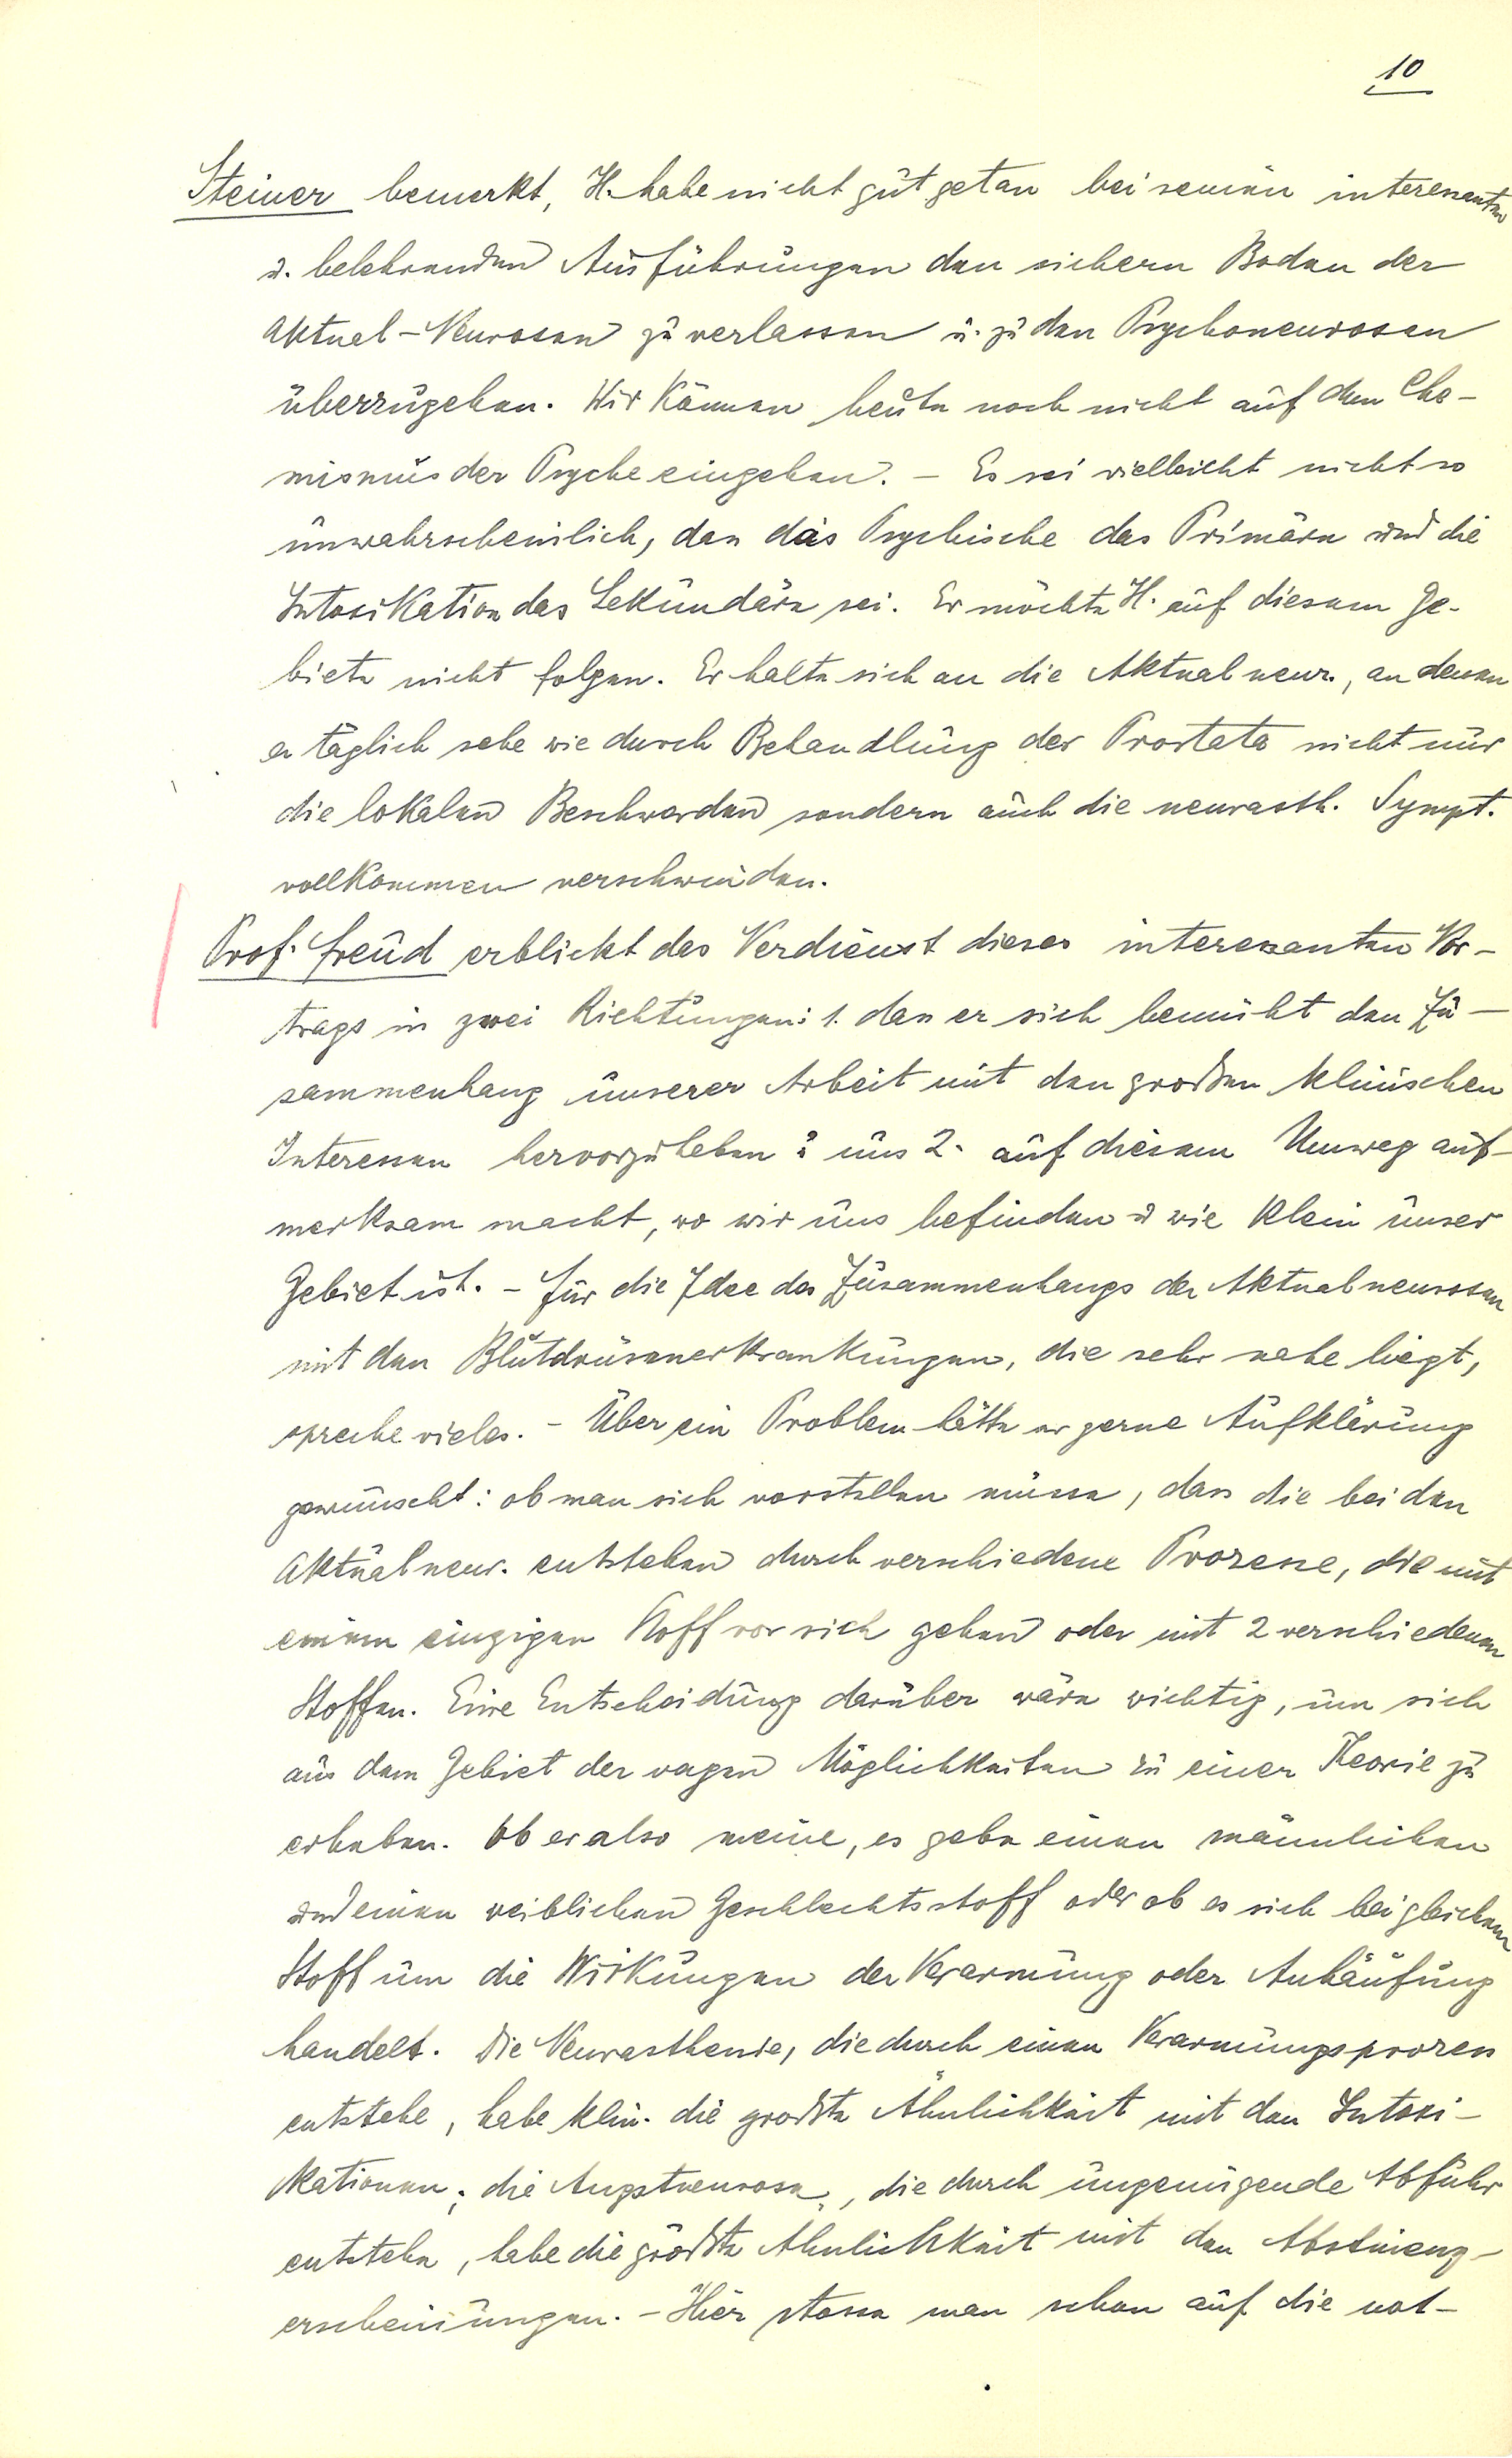 10
Steiner bemerkt, H. habe nicht gut getan bei seinen interessanten
u. belehrenden Ausführungen den sichern Boden der
Aktual-Neurosen zu verlassen u. zu den Psychoneurosen
überzugehen. Wir können heute noch nicht auf den Che-
mismus der Psyche eingehen. – Es sei vielleicht nicht so
unwahrscheinlich, dass das Psychische das Primäre und die
Intoxikation das Sekundäre sei. Er möchte H. auf diesem Ge-
biete nicht folgen. Er halte sich an die Aktualneur., an denen
er täglich sehe wie durch Behandlung der Prostata nicht nur
die lokalen Beschwerden sondern auch die neurasth. Sympt.
vollkommen verschwinden.
Prof. Freud erblickt das Verdienst dieses interessanten Vor-
trags in zwei Richtungen: 1. dass er sich bemüht den Zu-
sammenhang unserer Arbeit mit den großen klinischen
Interessen hervorzuheben u. uns 2. auf diesem Umweg auf-
merksam macht, wo wir uns befinden u wie klein unser
Gebiet ist. – Für die Idee des Zusammenhangs der Aktualneurosen
mit den Blutdrüsenerkrankungen, die sehr nahe liegt,
spreche vieles. – Über ein Problem hätte er gerne Aufklärung
gewünscht: ob man sich vorstellen müsse, dass die beiden
Aktualneur. entstehen durch verschiedene Prozesse, die mit
einem einzigen Stoff vor sich gehen oder mit 2 verschiedenen
Stoffen. Eine Entscheidung darüber wäre wichtig, um sich
aus dem Gebiet der vagen Möglichkeiten zu einer Theorie zu
erheben. Ob er also meine, es gebe einen männlichen
und einen weiblichen Geschlechtsstoff oder ob es sich bei gleichem
Stoff um die Wirkungen der Verarmung oder Anhäufung
handelt. Die Neurasthenie, die durch einen Verarmungsprozess
entstehe, habe klin. die großte Ähnlichkeit mit den Intoxi-
kationen; die Angstneurose, die durch ungenügende Abfuhr
entstehe, habe die größte Ähnlichkeit mit den Abstinenz-
erscheinungen. – Hier stosse man schon auf die not-